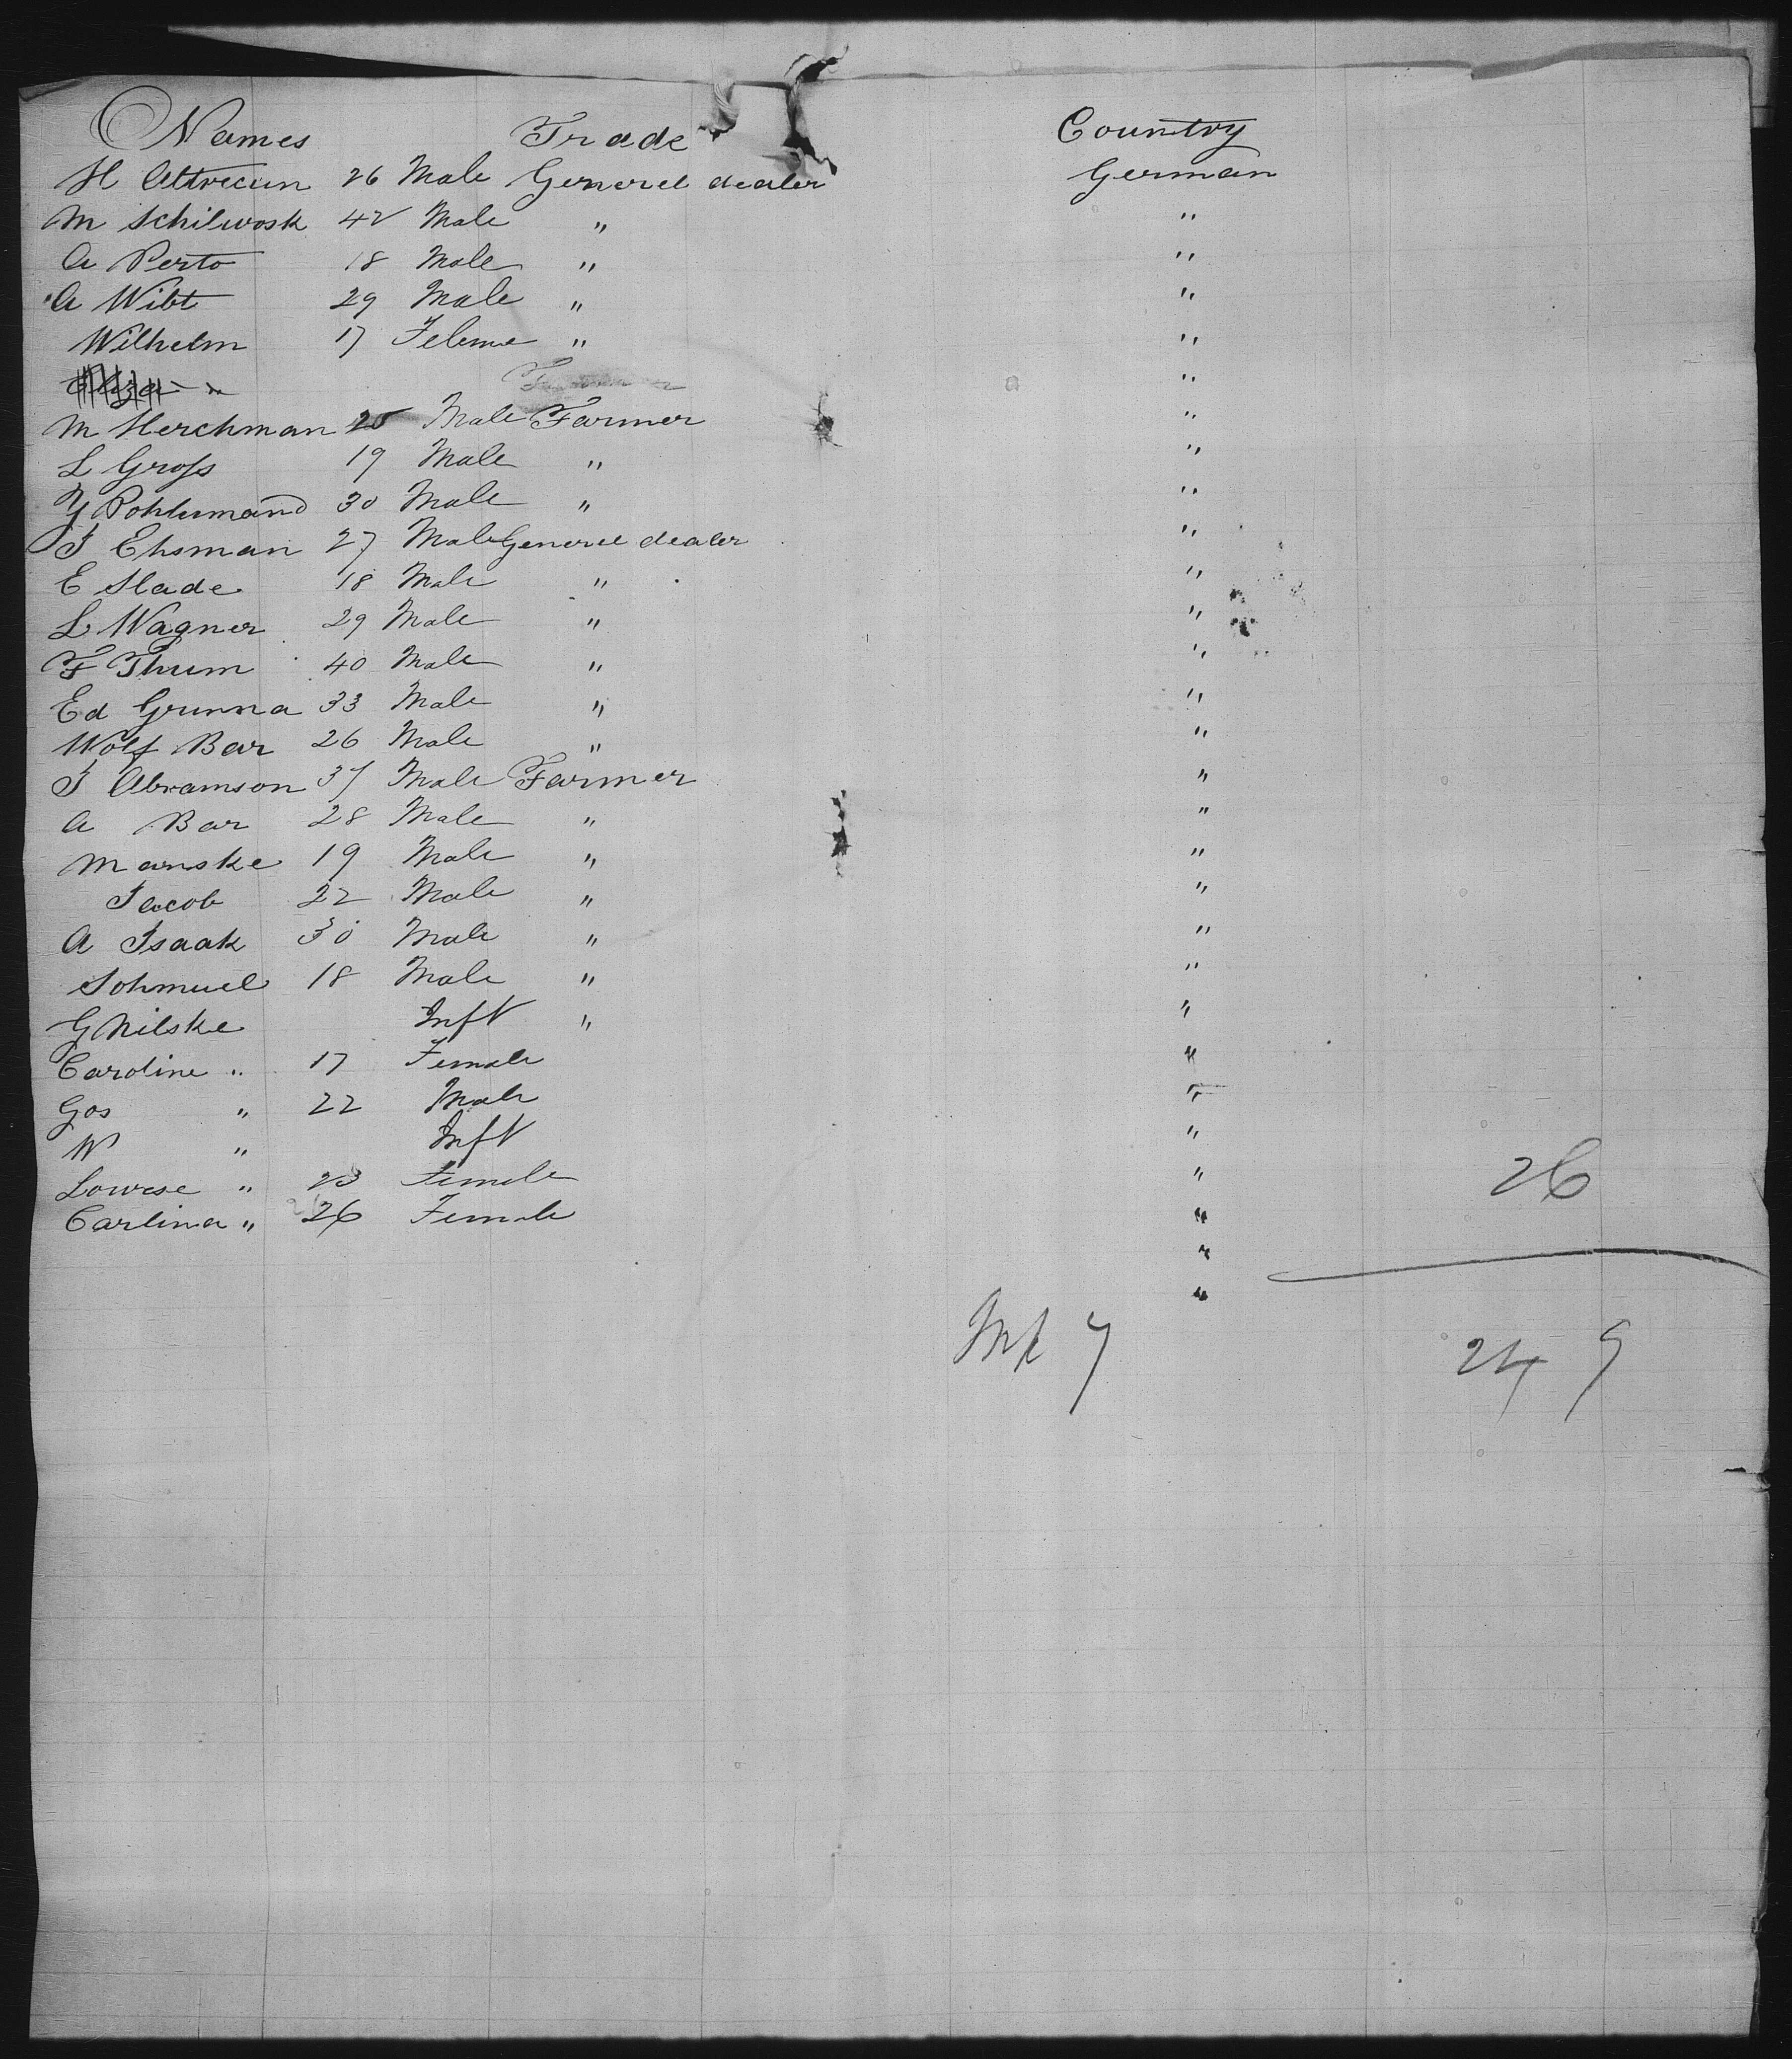 Names Trade Country
H Altrecun 26 Male Generel dealer German
M Schilwosk 42 Male " "
A Perto 18 Male " "
A Wibt 29 Male " "
Wilhelm 17 Feleme " "
"
M Herchman 25 Male Farmer "
L Gross 19 Male " "
Y Pohlumand 30 Male " "
J Ehsman 27 Male Generel dealer "
E Slade 18 Male " "
L Wagner 29 Male " "
F Thum 40 Male " "
Ed Grunna 33 Male " "
Wolf Bar 26 Male " "
J Abramson 37 Male Farmer "
A Bar 28 Male " "
Manske 19 Male " "
Jacob 22 Male " "
A Isaak 30 Male " "
Sohmuel 18 Male " "
G Nilske Inft " "
Caroline " 17 Female "
Gos " 22 Male "
W " Inft "
Lowese " 23 Female " 26
Carlina " 26 Female "
"
"
24 9